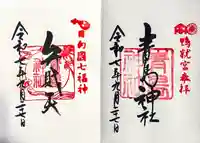 鴨就宮奉拝
青島神社
令和七年九月二七日
日向國七福神
弁財天
令和七年九月二七日